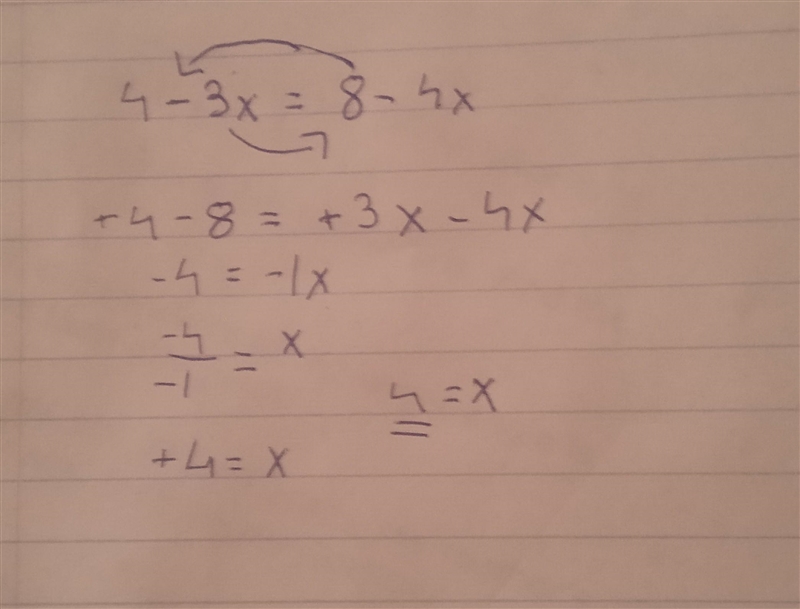 4 - 3x = 8 - 4x
+4 - 8 = +3x - 4x
-4 = -1x
-4/-1 = x
4 = x
+4 = x